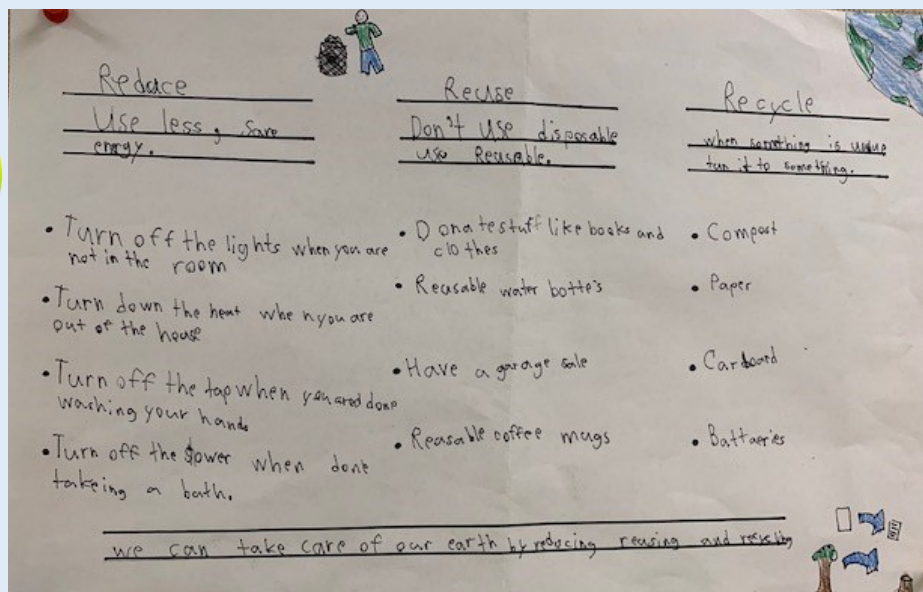 Reduce
Use less, save
energy.
• Turn off the lights when you are
not in the room
• Turn down the heat when you are
out of the house
• Turn off the tap when you ared done
washing your hands
• Turn off the sower when done
takeing a bath.
Reuse
Don't use disposable
use Reusable.
• Donate stuff like books and
clothes
• Reusable water botte's
• Have a garage sale
• Reasable coffee mugs
Recycle
when something is
turn it to something.
• Compost
• Paper
• Carboard
• Battaeries
we can take care of our earth by reducing reusing and recycling